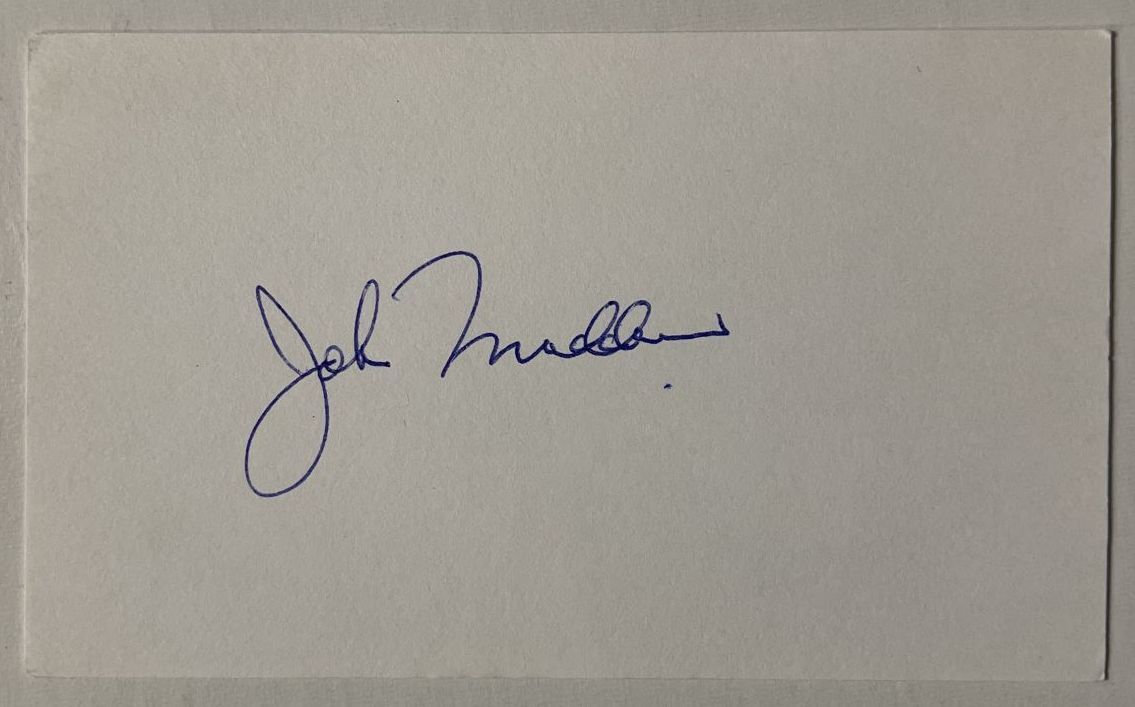 John Madden